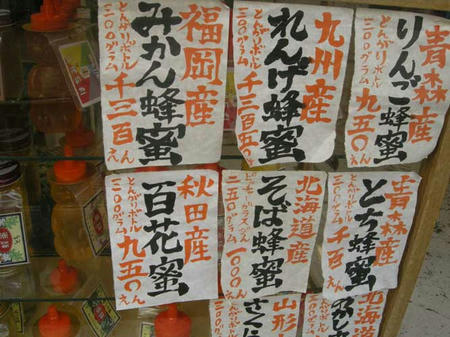 青森産
りんご蜂蜜
とんがりボトル
三〇〇グラム 九五〇えん
九州産
れんげ蜂蜜
とんがりボトル
三〇〇グラム 千三百えん
福岡産
みかん蜂蜜
とんがりボトル
三〇〇グラム 千三百えん
青森産
とち蜂蜜
とんがりボトル
三〇〇グラム 千百えん
北海道産
そば蜂蜜
二五〇グラム 一〇〇〇えん
秋田産
百花蜜
とんがりボトル
三〇〇グラム 九五〇えん
北海
山形
さくら